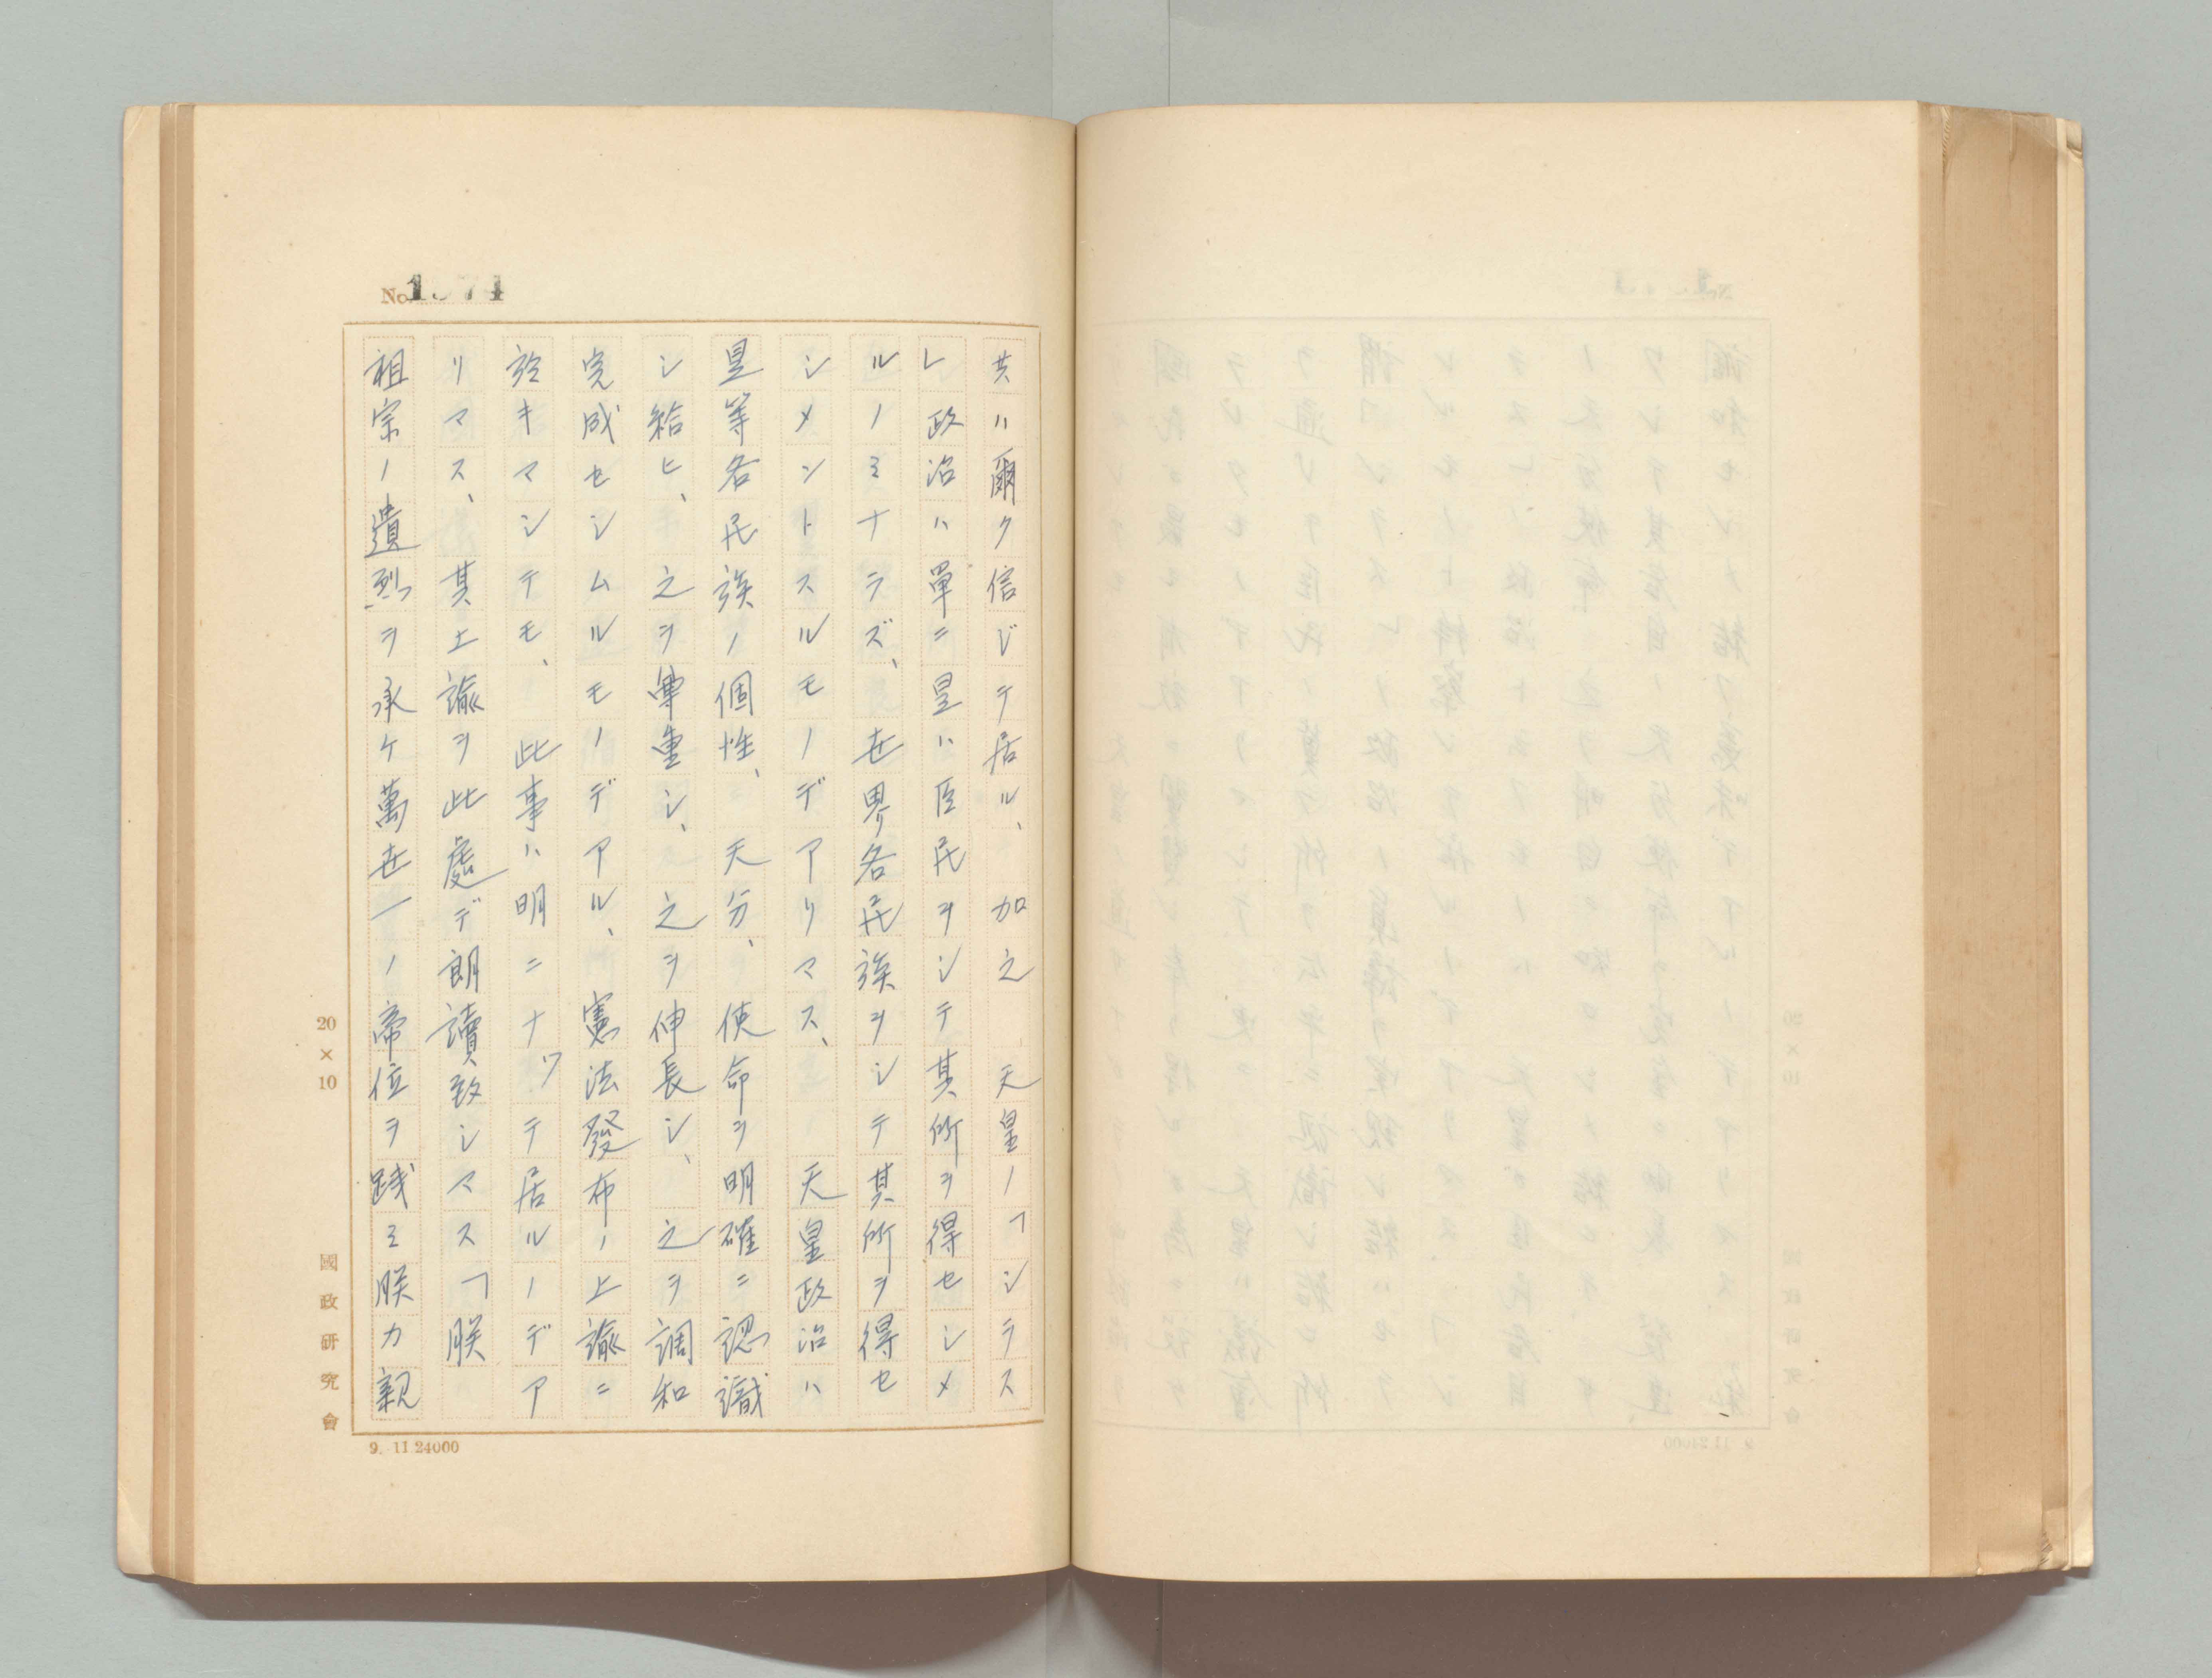 No.
共ハ爾ク信ジテ居ル、加之 天皇ノ「シラス
」政治ハ單ニ是ハ臣民ヲシテ其所ヲ得セシメ
ルノミナラズ、世界各民族ヲシテ其所ヲ得セ
シメントスルモノデアリマス、天皇政治ハ
是等各民族ノ個性、天分、使命ヲ明確ニ認識
シ給ヒ、之ヲ尊重シ、之ヲ伸長シ、之ヲ調和
完成セシムルモノデアル、憲法發布ノ上諭ニ
於キマシテモ、此事ハ明ニナツテ居ルノデア
リマス、其上諭ヲ此處デ朗讀致シマス「朕
祖宗ノ遺烈ヲ承ケ萬世一ノ帝位ヲ践ミ朕カ親
20×10
國政研究會
9. 11 24000